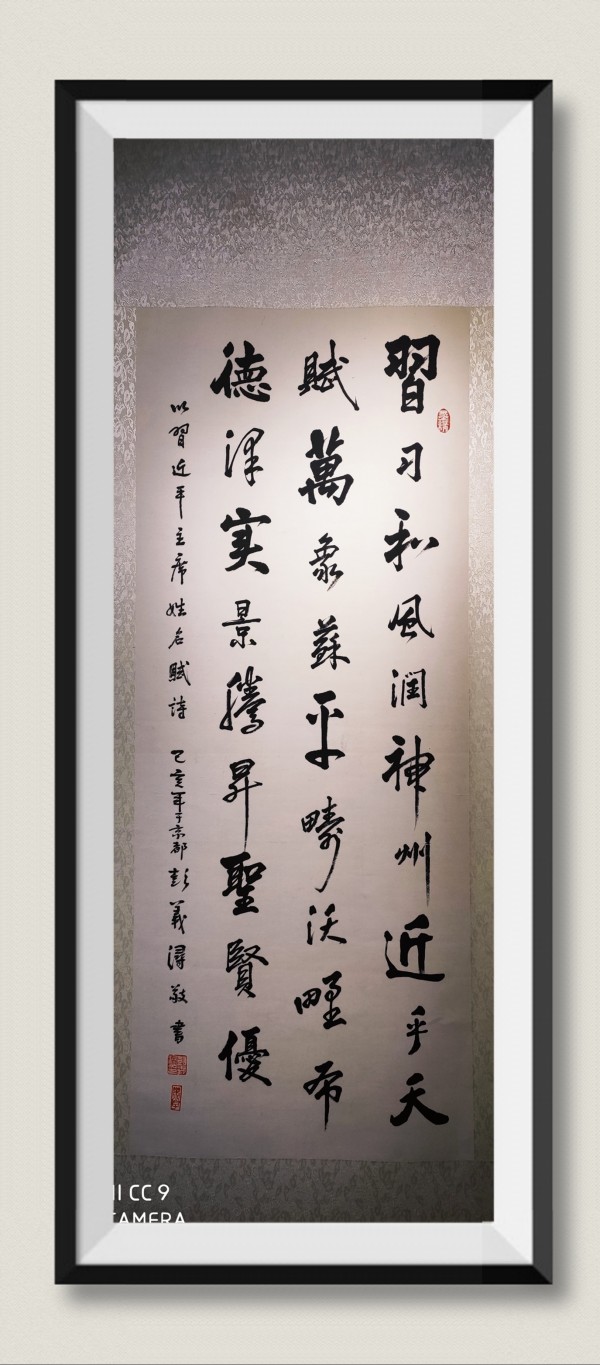 習习和風潤神州近乎天
賦萬象蘇平畴沃野布
德泽实景騰昇聖賢優
以習近平主席姓名賦詩 己亥年于京都彭義潯敬書
CC 9